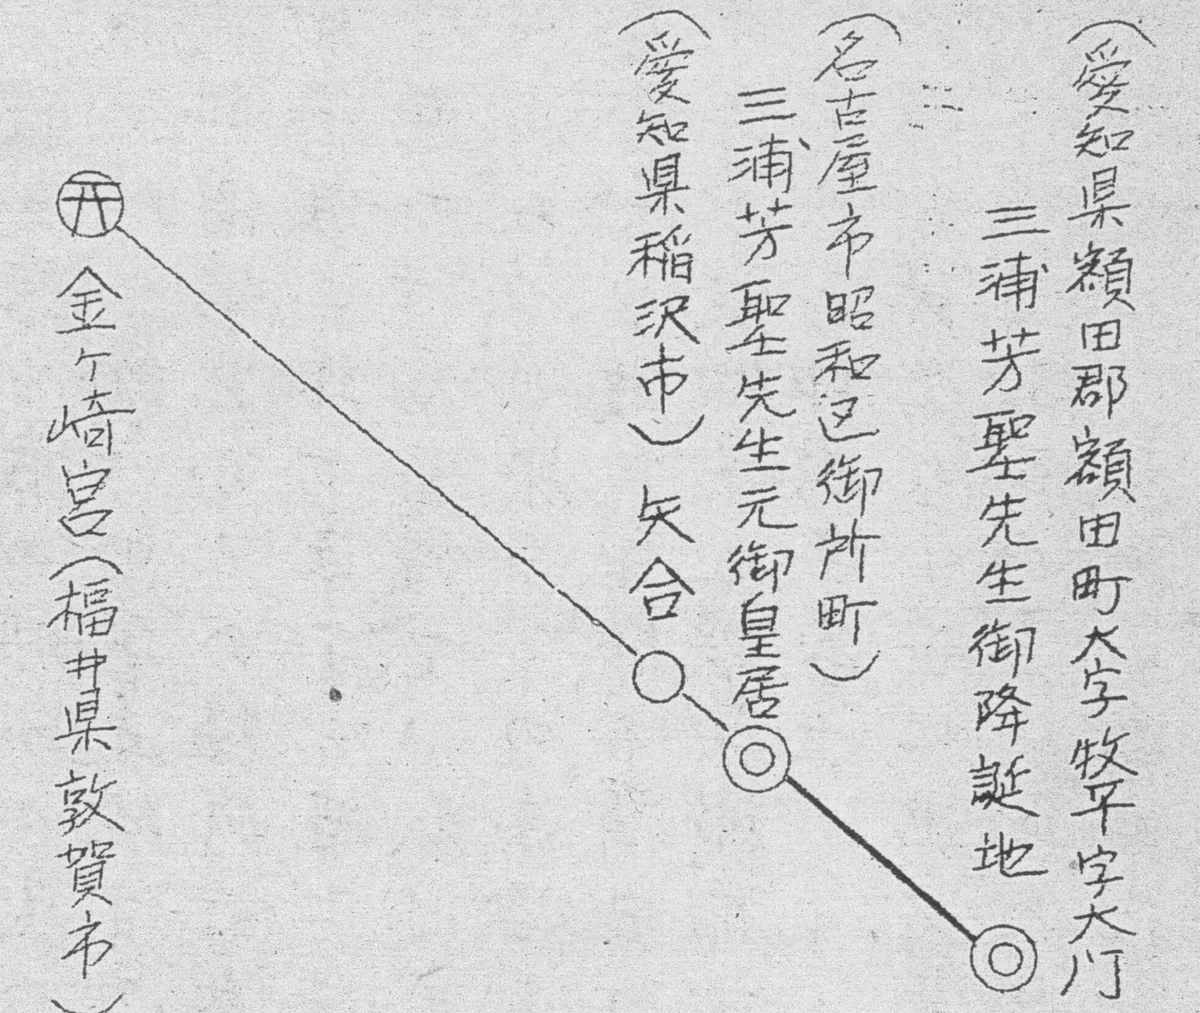 (愛知県額田郡額田町大字牧平字大門
三浦芳聖先生御降誕地
(名古屋市昭和区御所町)
三浦芳聖先生元御皇居
(愛知県稲沢市) 矢合
金ヶ崎宮(福井県敦賀市)